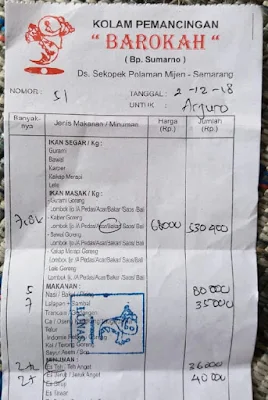 KOLAM PEMANCINGAN
" BAROKAH "
( Bp. Sumarno )
Ds. Sekopek Polaman Mijen - Semarang
NOMOR : 51 TANGGAL : 2-12-18
UNTUK : Arjuno
Banyak-nya Jenis Makanan / Minuman Harga (Rp.) Jumlah (Rp.)
IKAN SEGAR / Kg :
- Gurami
- Bawal
- Karper
- Kakap Merapi
- Lele
IKAN MASAK / Kg :
- Gurami Goreng
- Lombok Ijo /A.Pedas/Acar/Bakar/Saos/Bali
- Kaber Goreng
- Lombok Ijo /A.Pedas/Acar/Bakar/Saos/Bali 68000 530400
- Bawal Goreng
- Lombok Ijo /A.Pedas/Acar/Bakar/Saos/Bali
- Kakap Merapi Goreng
- Lombok Ijo /A.Pedas/Acar/Bakar/Saos/Bali
- Lele Goreng
- Lombok Ijo /A.Pedas/Acar/Bakar/Saos/Bali
MAKANAN :
5 - Nasi / 80000
7 - Lalapan + Sambal 35000
- Ca /
- Telur
- Indomie
- Goreng
- Sayur / Asem / Sop
MINUMAN
- Es Teh, Teh Anget 36000
- Es Jeruk / Jeruk Anget 40000
- Es Sirup